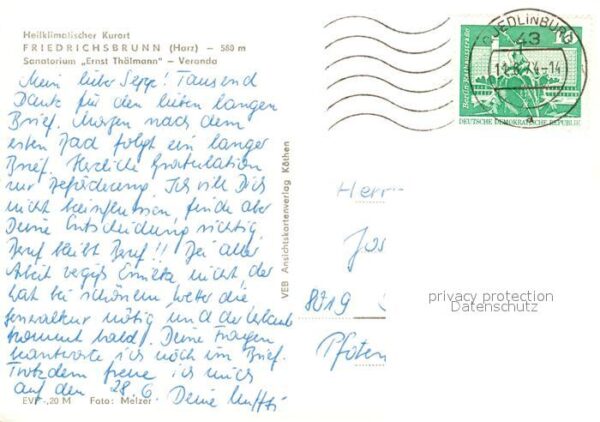 Heilklimatischer Kurort
FRIEDRICHSBRUNN (Harz) – 580 m
Sanatorium „Ernst Thälmann" – Veranda
Mein lieber Seppe! Tausend
Dank für den lieben langen
Brief. Morgen nach dem
ersten Bad folgt ein langer
Brief. Herzliche Gratulation
zur Beförderung. Ich will Dich
nicht beeinflussen, finde aber
Deine Entscheidung richtig.
Beruf bleibt Beruf!! Bei aller
Arbeit vergiß nicht, der
hat bei schönem Wetter die
Generalkur nötig und der Urlaub
kommt bald. Deine Fragen
beantworte ich noch im Brief.
Trotzdem freue ich mich
auf den 28.6. Deine
EVP -,20 M Foto: Melzer
VEB Ansichtskartenverlag Köthen
QUEDLINBURG
43
Berlin, Rathausstraße
DEUTSCHE DEMOKRATISCHE REPUBLIK
Herr
Jos
8019
Pfoten
privacy protection
Datenschutz